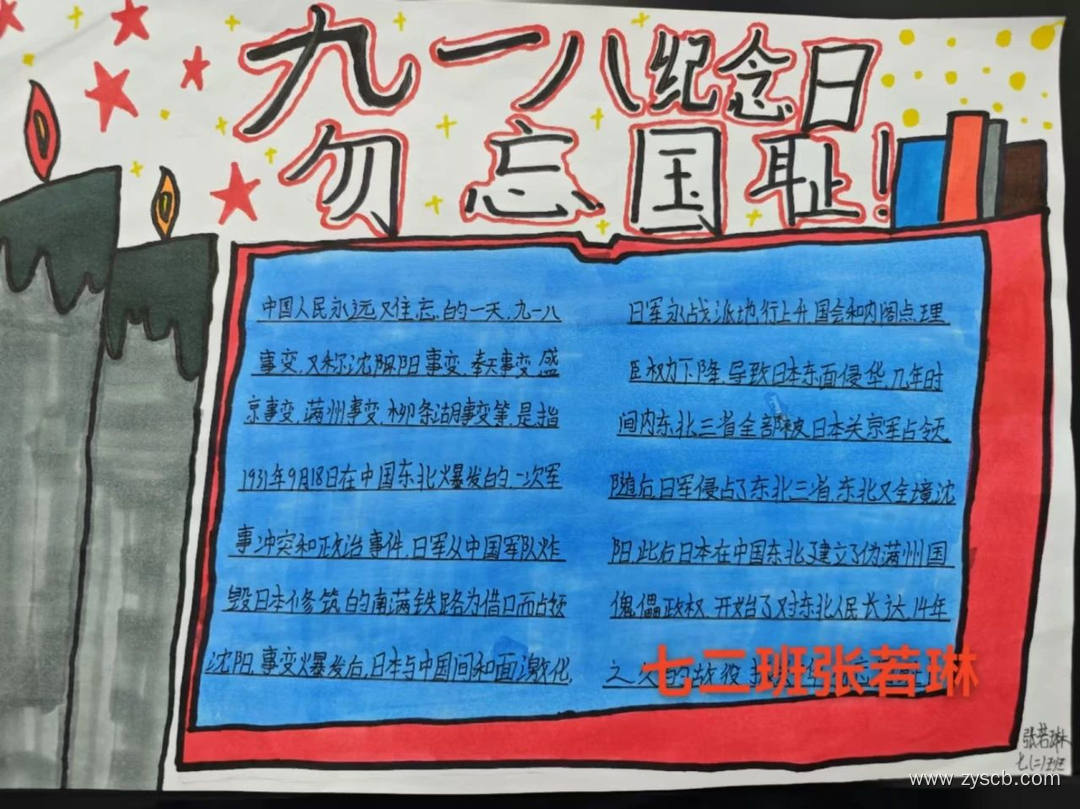 九一八纪念日
勿忘国耻!
中国人民永远又住忘的一天,九一八
事变,又称沈阳事变、奉天事变、盛
京事变、满州事变、柳条湖事变等,是指
1931年9月18日在中国东北爆发的一次军
事冲突和政治事件,日军从中国军队炸
毁日本修筑的南满铁路为借口而占领
沈阳,事变爆发后,日本与中国间和面激化,
日军永战派地行上升,国会和内阁点理
臣权力下降,导致日本东面侵华,几年时
间内东北三省全部被日本关京军占领
随后,日军侵占了东北三省,东北又全境沈
阳,此后日本在中国东北了建立了伪满州国
傀儡政权,开始了对东北人民长达14年
之久的
七二班张若琳
张若琳
七(二)班
www.zyscb.com